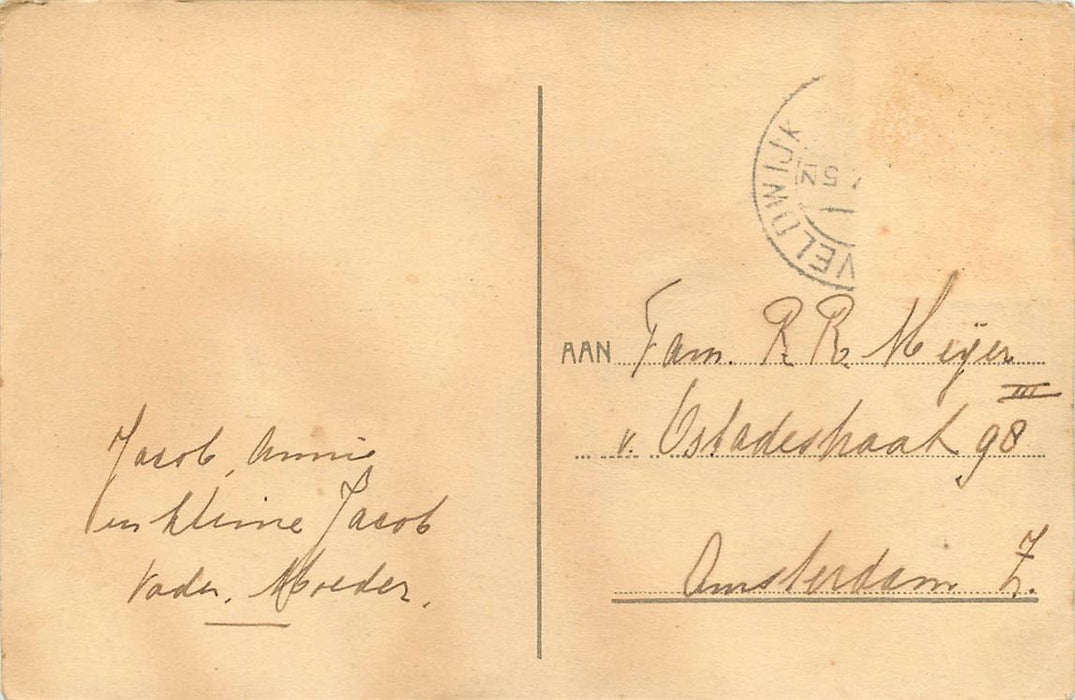 Jacob, Annie
en kleine Jacob
Vader, Moeder.
VELDWIJK
5N
1
AAN Fam. R. R. Meijer
v. Ostadestraat 98 III
Amsterdam Z.